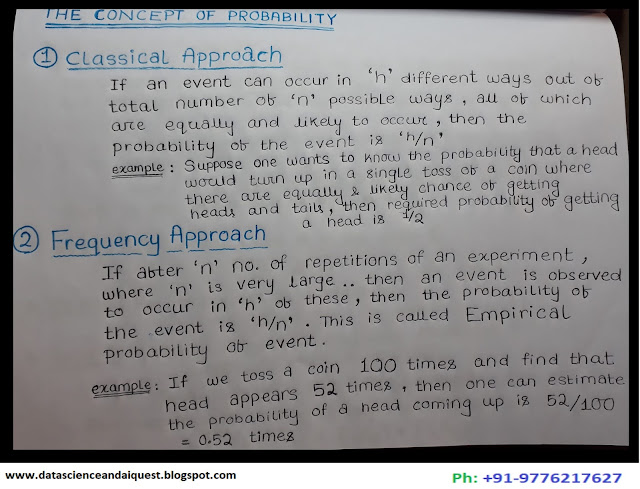 THE CONCEPT OF PROBABILITY
① Classical Approach
If an event can occur in 'h' different ways out of
total number of 'n' possible ways, all of which
are equally and likely to occur, then the
probability of the event is 'h/n'
example: Suppose one wants to know the probability that a head
would turn up in a single toss of a coin where
there are equally & likely chance of getting
heads and tails, then required probability of getting
a head is 1/2
② Frequency Approach
If after 'n' no. of repetitions of an experiment,
where 'n' is very large .. then an event is observed
to occur in 'h' of these, then the probability of
the event is 'h/n'. This is called Empirical
probability of event.
example: If we toss a coin 100 times and find that
head appears 52 times, then one can estimate
the probability of a head coming up is 52/100
= 0.52 times
www.datascienceandaiquest.blogspot.com
Ph: +91-9776217627